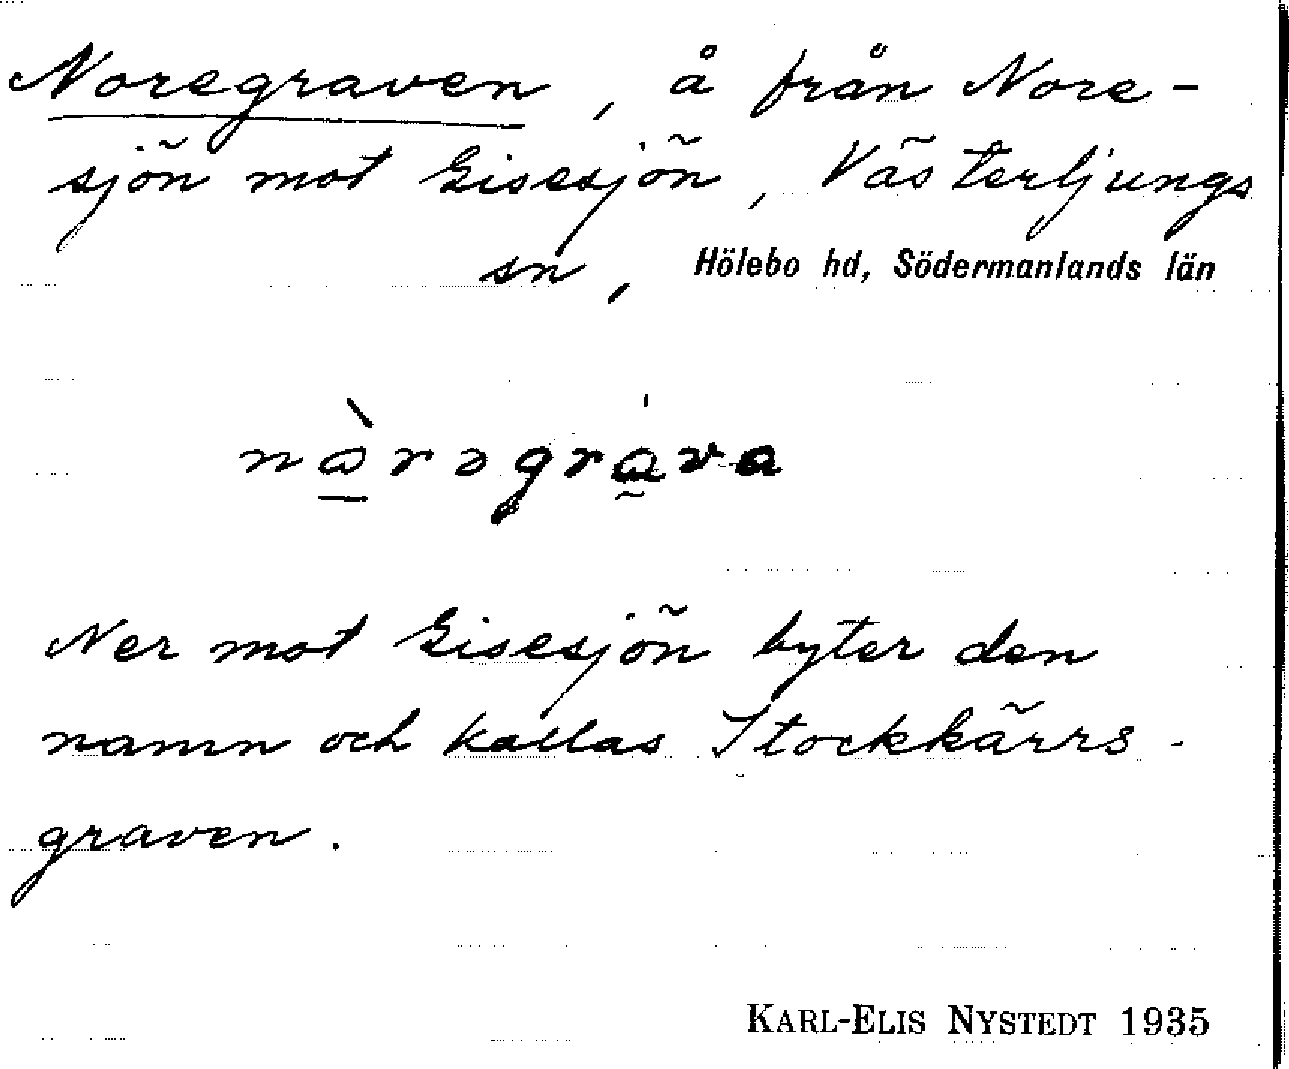 Noregraven, å från Nore-
sjön mot Gisesjön, Västerljungs
sn, Hölebo hd, Södermanlands län
nàrəgráva
Ner mot Gisesjön byter den
namn och kallas Stockkärrs-
graven.
KARL-ELIS NYSTEDT 1935